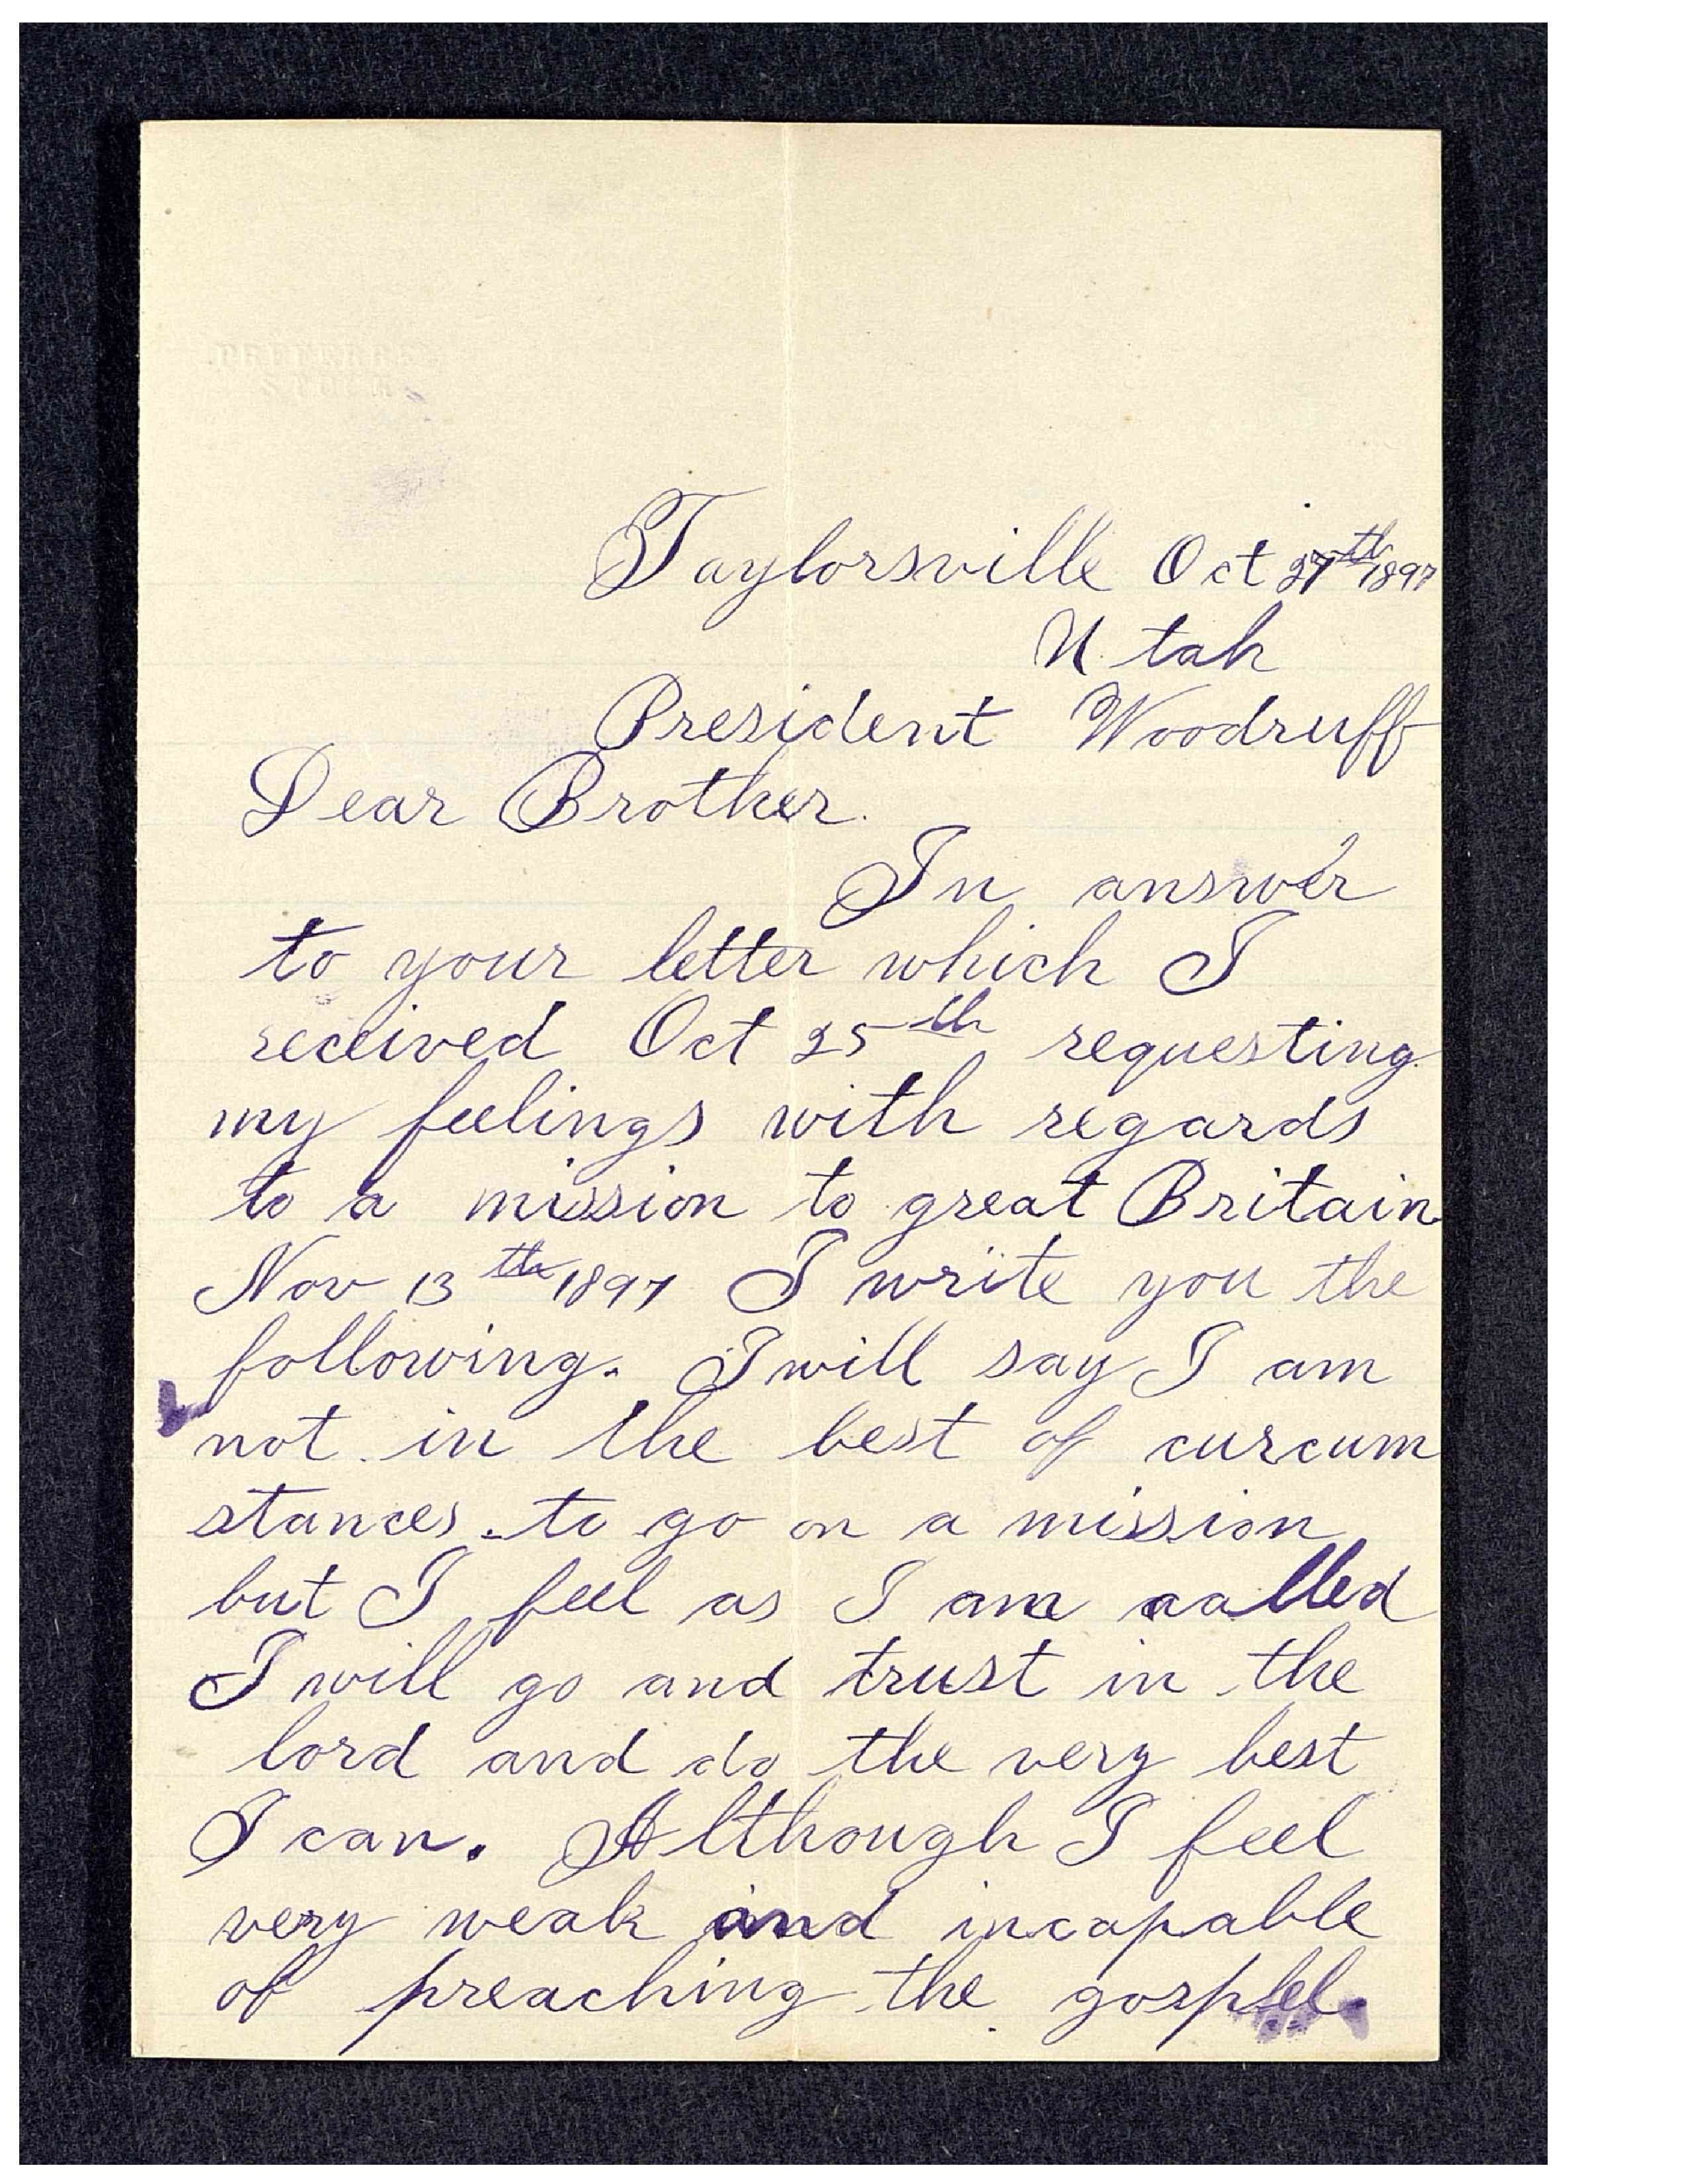 PREFERRED
STOCK
Taylorsville Oct 27th 1897
Utah
President Woodruff
Dear Brother.
In answer
to your letter which I
received Oct 25th requesting
my feelings with regards
to a mission to great Britain
Nov 13th 1897 I write you the
following. I will say I am
not in the best of curcum
stances to go on a mission
but I feel as I am called
I will go and trust in the
lord and do the very best
I can. Although I feel
very weak and incapable
of preaching the gospel.